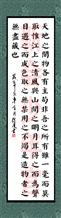 天地之間物各有主苟非吾之所有雖一毫而莫
取惟江上之清風與山間之明月耳得之而為聲
目遇之而成色取之無禁用之不竭是造物者之
無盡藏也